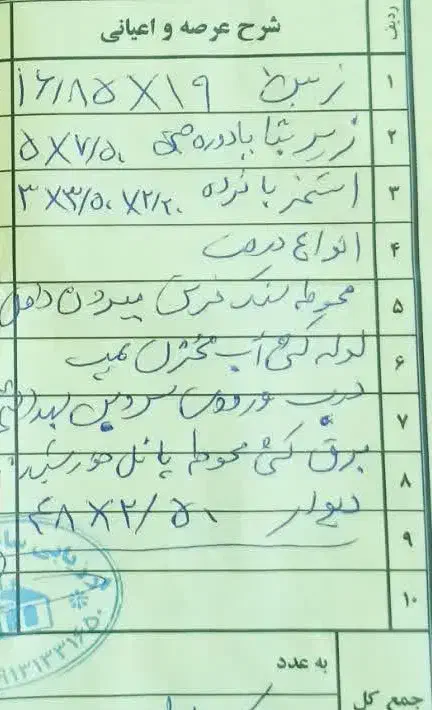 ردیف شرح عرصه و اعیانی
۱ زمین ۱۹ × ۱۶/۸۵
۲ زیر بنا با دوره چینی ۷/۵۰ × ۵
۳ استخر با نرده ۲/۲۰ × ۳/۵۰ × ۳
۴ انواع درخت
۵ محوطه سنگ فرش بیرون داخل
۶ لوله کشی آب مخزن پمپ
۷ درب ورودی سرویس بهداشتی
۸ برق کشی محوطه پانل خورشیدی
۹ دیوار ۲/۵۰ × ۴۸
۱۰
به عدد
جمع کل